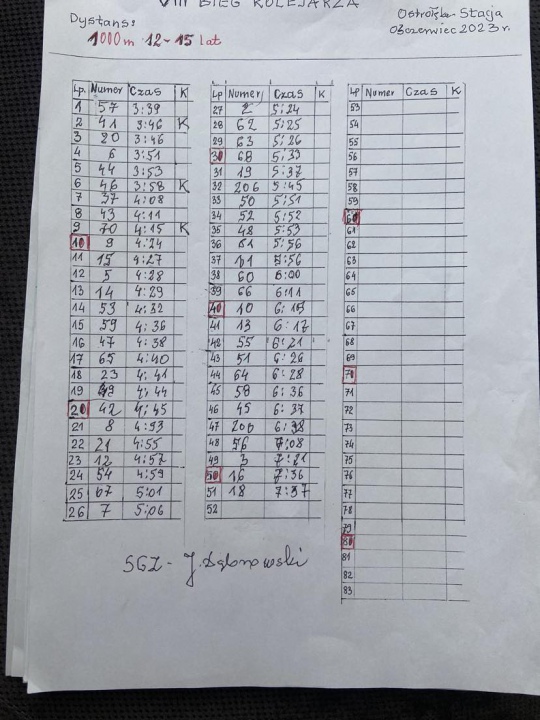 VIII BIEG KOLEJARZA
Dystans:
1000 m 12-15 lat
Ostrołęka Stacja
03czerwiec 2023r.
Lp. Numer Czas K
1 57 3:39
2 41 3:46 K
3 20 3:46
4 6 3:51
5 44 3:53
6 46 3:58 K
7 37 4:08
8 43 4:11
9 70 4:15 K
10 9 4:24
11 15 4:27
12 5 4:28
13 14 4:29
14 53 4:32
15 59 4:36
16 47 4:38
17 65 4:40
18 23 4:41
19 49 4:44
20 42 4:45
21 8 4:53
22 21 4:55
23 12 4:57
24 54 4:59
25 67 5:01
26 7 5:06
Lp Numer Czas K
27 2 5:24
28 62 5:25
29 63 5:26
30 68 5:33
31 19 5:37
32 206 5:45
33 50 5:51
34 52 5:52
35 48 5:53
36 61 5:56
37 11 5:56
38 60 6:00
39 66 6:11
40 10 6:15
41 13 6:17
42 55 6:21
43 51 6:26
44 64 6:28
45 58 6:36
46 45 6:37
47 200 6:38
48 56 7:08
49 3 7:21
50 16 7:36
51 18 7:37
52
Lp Numer Czas K
53
54
55
56
57
58
59
60
61
62
63
64
65
66
67
68
69
70
71
72
73
74
75
76
77
78
79
80
81
82
83
SGZ - J.